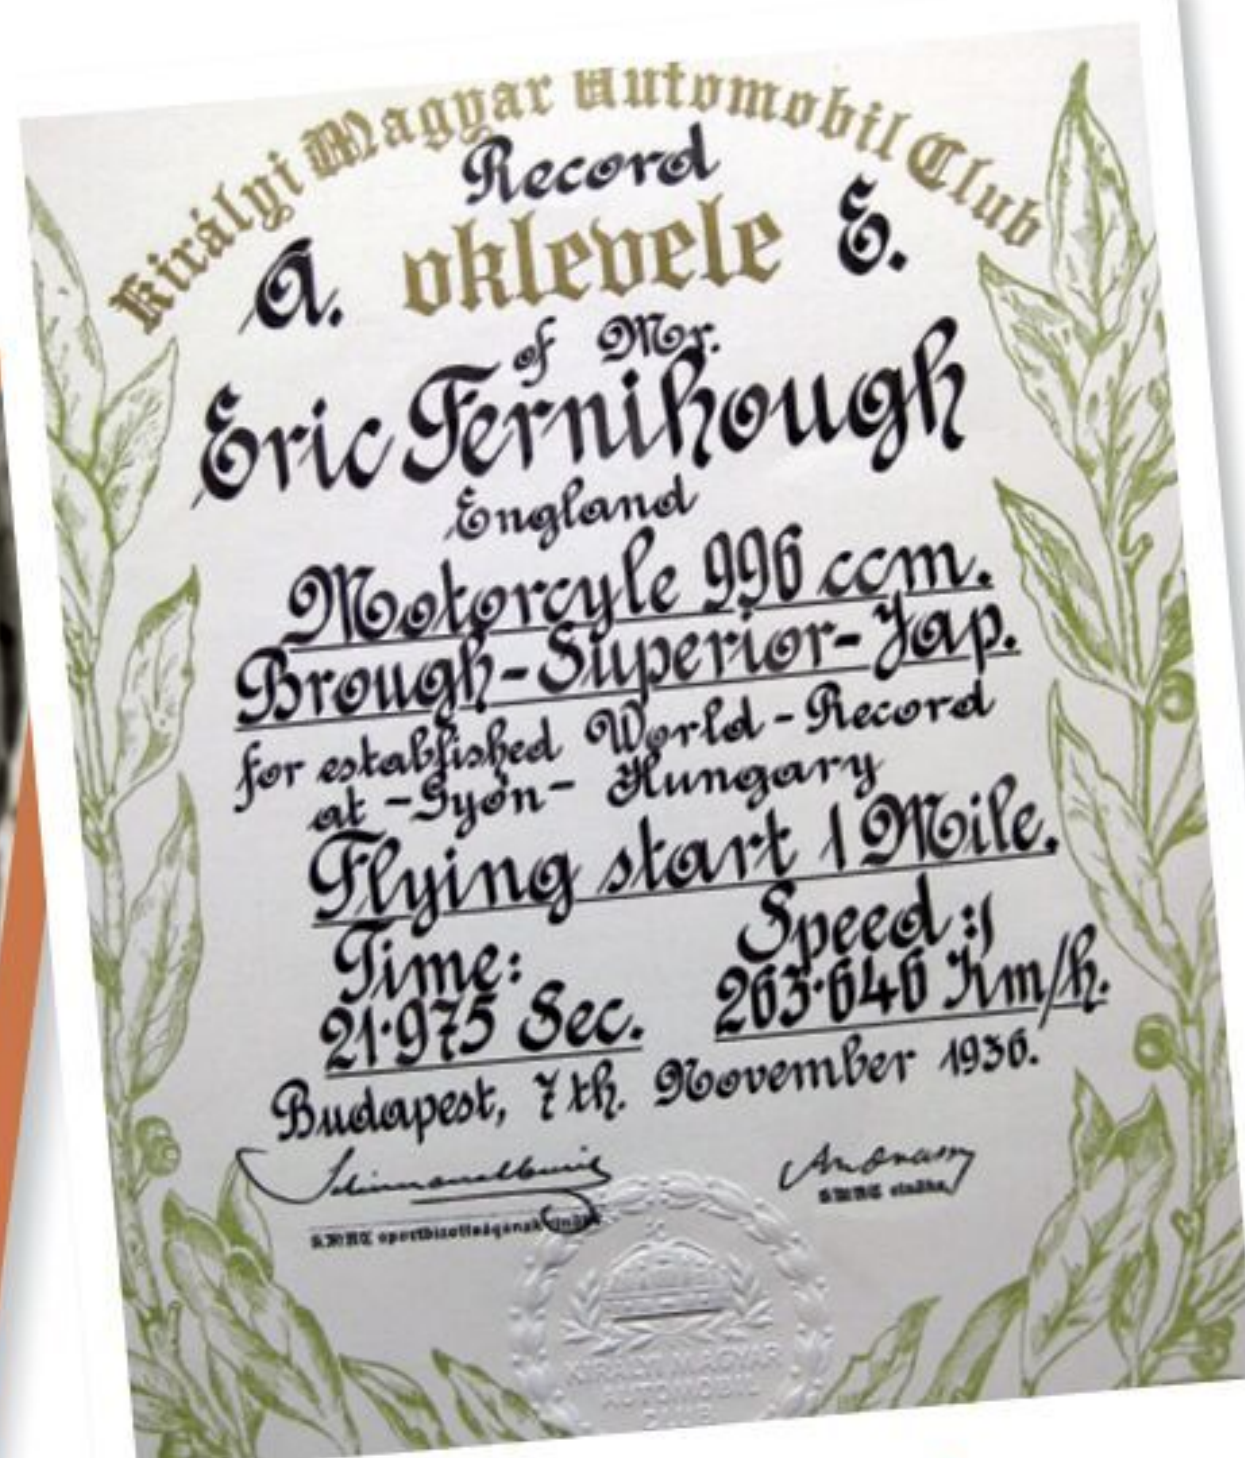 Királyi Magyar Automobil Club
Record
A. oklevele E.
of Mr.
Eric Fernihough
England
Motorcyle 996 ccm.
Brough-Superior-Jap.
for established World-Record
at -Gyón- Hungary
Flying start 1 Mile.
Time: Speed:
21·975 Sec. 263·646 Km/h.
Budapest, 7th. November 1936.
KMAC elnöke
KMAC sportbizottságának elnöke
KIRÁLYI MAGYAR
AUTOMOBIL
CLUB